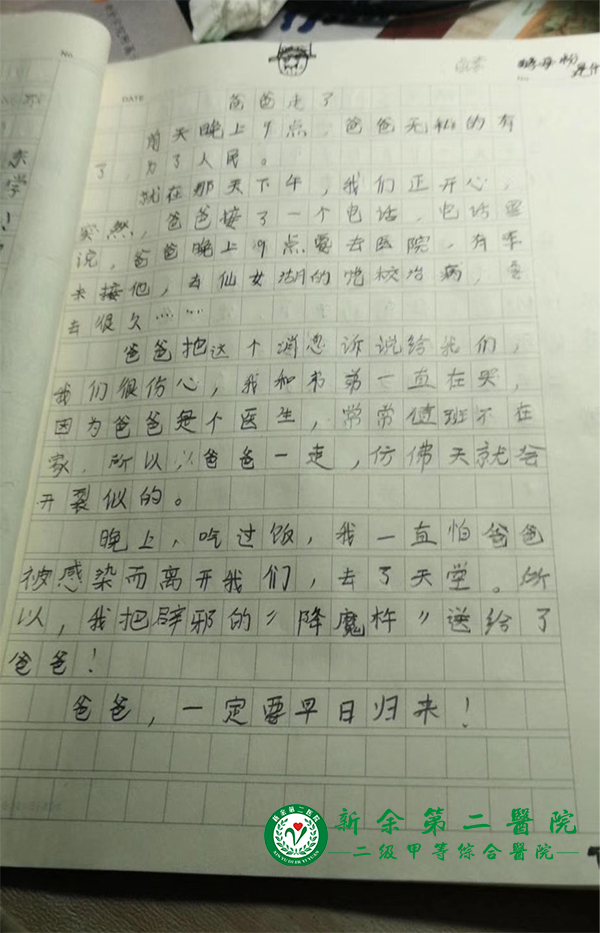 No.
DATE
爸爸走了
前天晚上9点，爸爸无私的有
了，为了人民。
就在那天下午，我们正开心，
突然，爸爸接了一个电话，电话里
说，爸爸晚上9点要去医院，有车
来接他，去仙女湖的党校治病，要
去很久……
爸爸把这个消息诉说给我们，
我们很伤心，我和弟弟一直在哭，
因为爸爸是个医生，常常值班不在
家，所以，爸爸一走，仿佛天就会
开裂似的。
晚上，吃过饭，我一直怕爸爸
被感染而离开我们，去了天堂。所
以，我把辟邪的“降魔杵”送给了
爸爸！
爸爸，一定要早日归来！
新余第二醫院
二级甲等综合醫院
新余第二医院
XIN YU DI ER YI YUAN